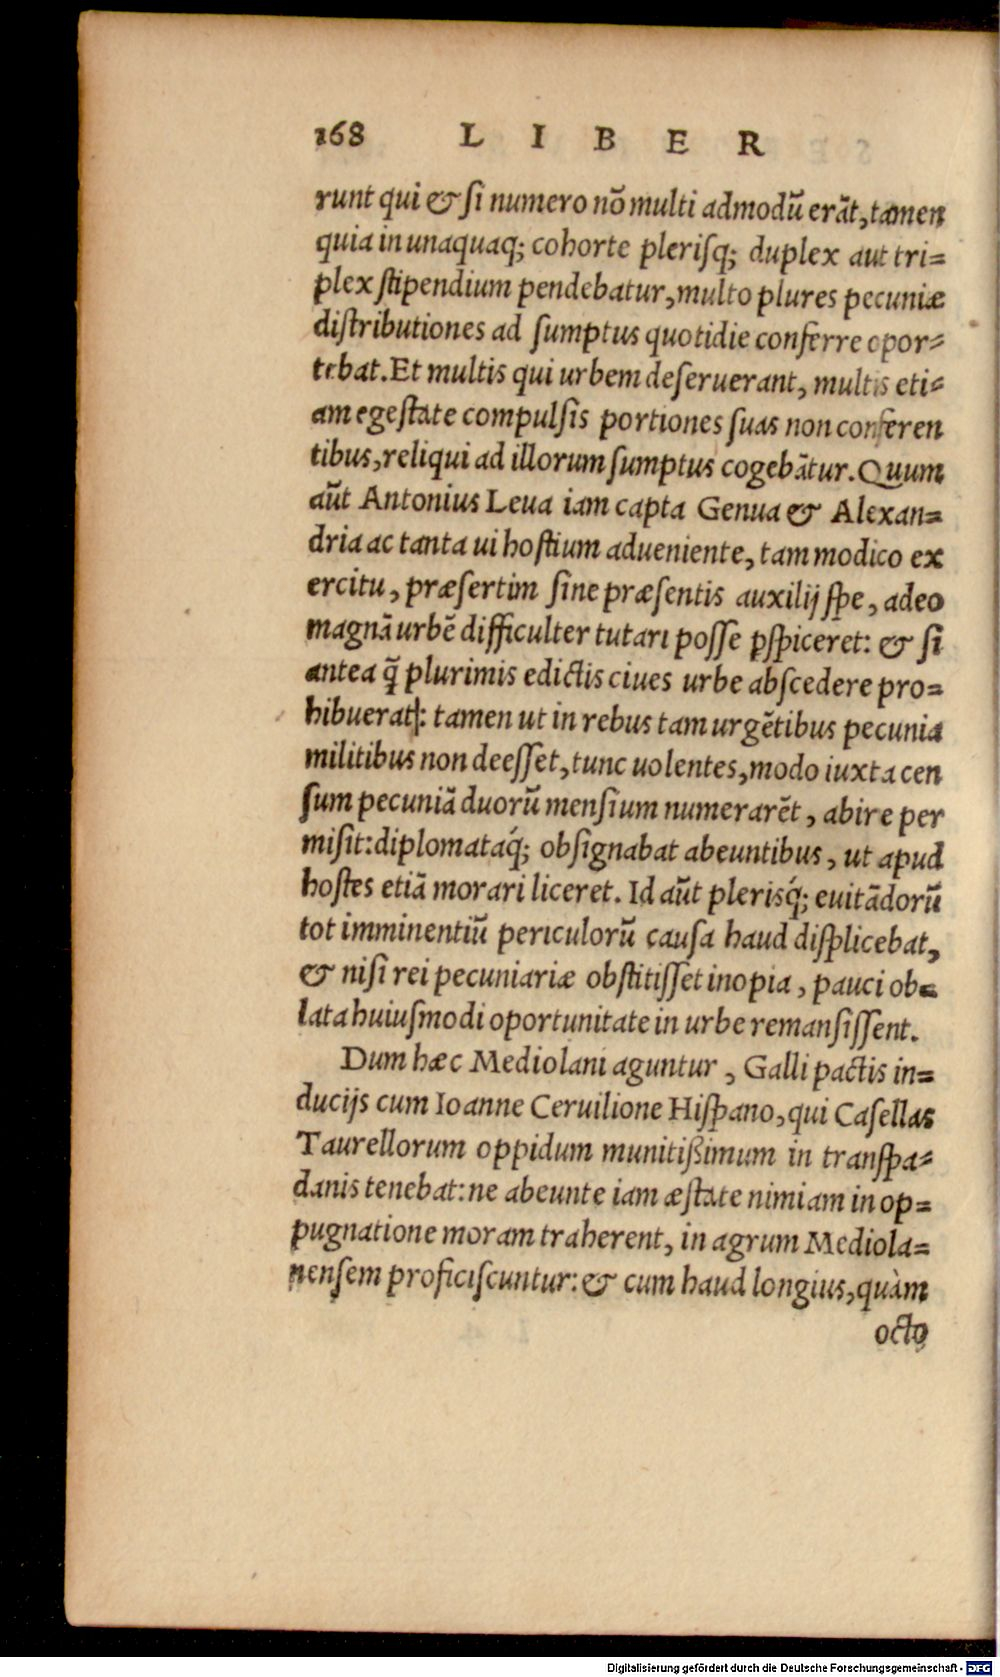 168 LIBER
runt qui & si numero nõ multi admodũ erãt, tamen
quia in unaquaq; cohorte plerisq; duplex aut tri=
plex stipendium pendebatur, multo plures pecuniæ
distributiones ad sumptus quotidie conferre opor=
tebat. Et multis qui urbem deseruerant, multis eti=
am egestate compulsis portiones suas non conferen
tibus, reliqui ad illorum sumptus cogebãtur. Quum
aũt Antonius Leua iam capta Genua & Alexan=
dria ac tanta ui hostium adueniente, tam modico ex
ercitu, præsertim sine præsentis auxilij spe, adeo
magnã urbẽ difficulter tutari posse ꝑspiceret: & si
antea q̃ plurimis edictis ciues urbe abscedere pro=
hibuerat: tamen ut in rebus tam urgẽtibus pecunia
militibus non deesset, tunc uolentes, modo iuxta cen
sum pecuniã duorũ mensium numerarẽt, abire per
misit: diplomataq́; obsignabat abeuntibus, ut apud
hostes etiã morari liceret. Id aũt plerisq́; euitãdorũ
tot imminentiũ periculorũ causa haud displicebat,
& nisi rei pecuniariæ obstitisset inopia, pauci ob=
lata huiusmodi oportunitate in urbe remansissent.
Dum hæc Mediolani aguntur, Galli pactis in=
ducijs cum Ioanne Ceruilione Hispano, qui Casellas
Taurellorum oppidum munitißimum in transpa=
danis tenebat: ne abeunte iam æstate nimiam in op=
pugnatione moram traherent, in agrum Mediola=
nensem proficiscuntur: & cum haud longius, quàm
octo
Digitalisierung gefördert durch die Deutsche Forschungsgemeinschaft - DFG